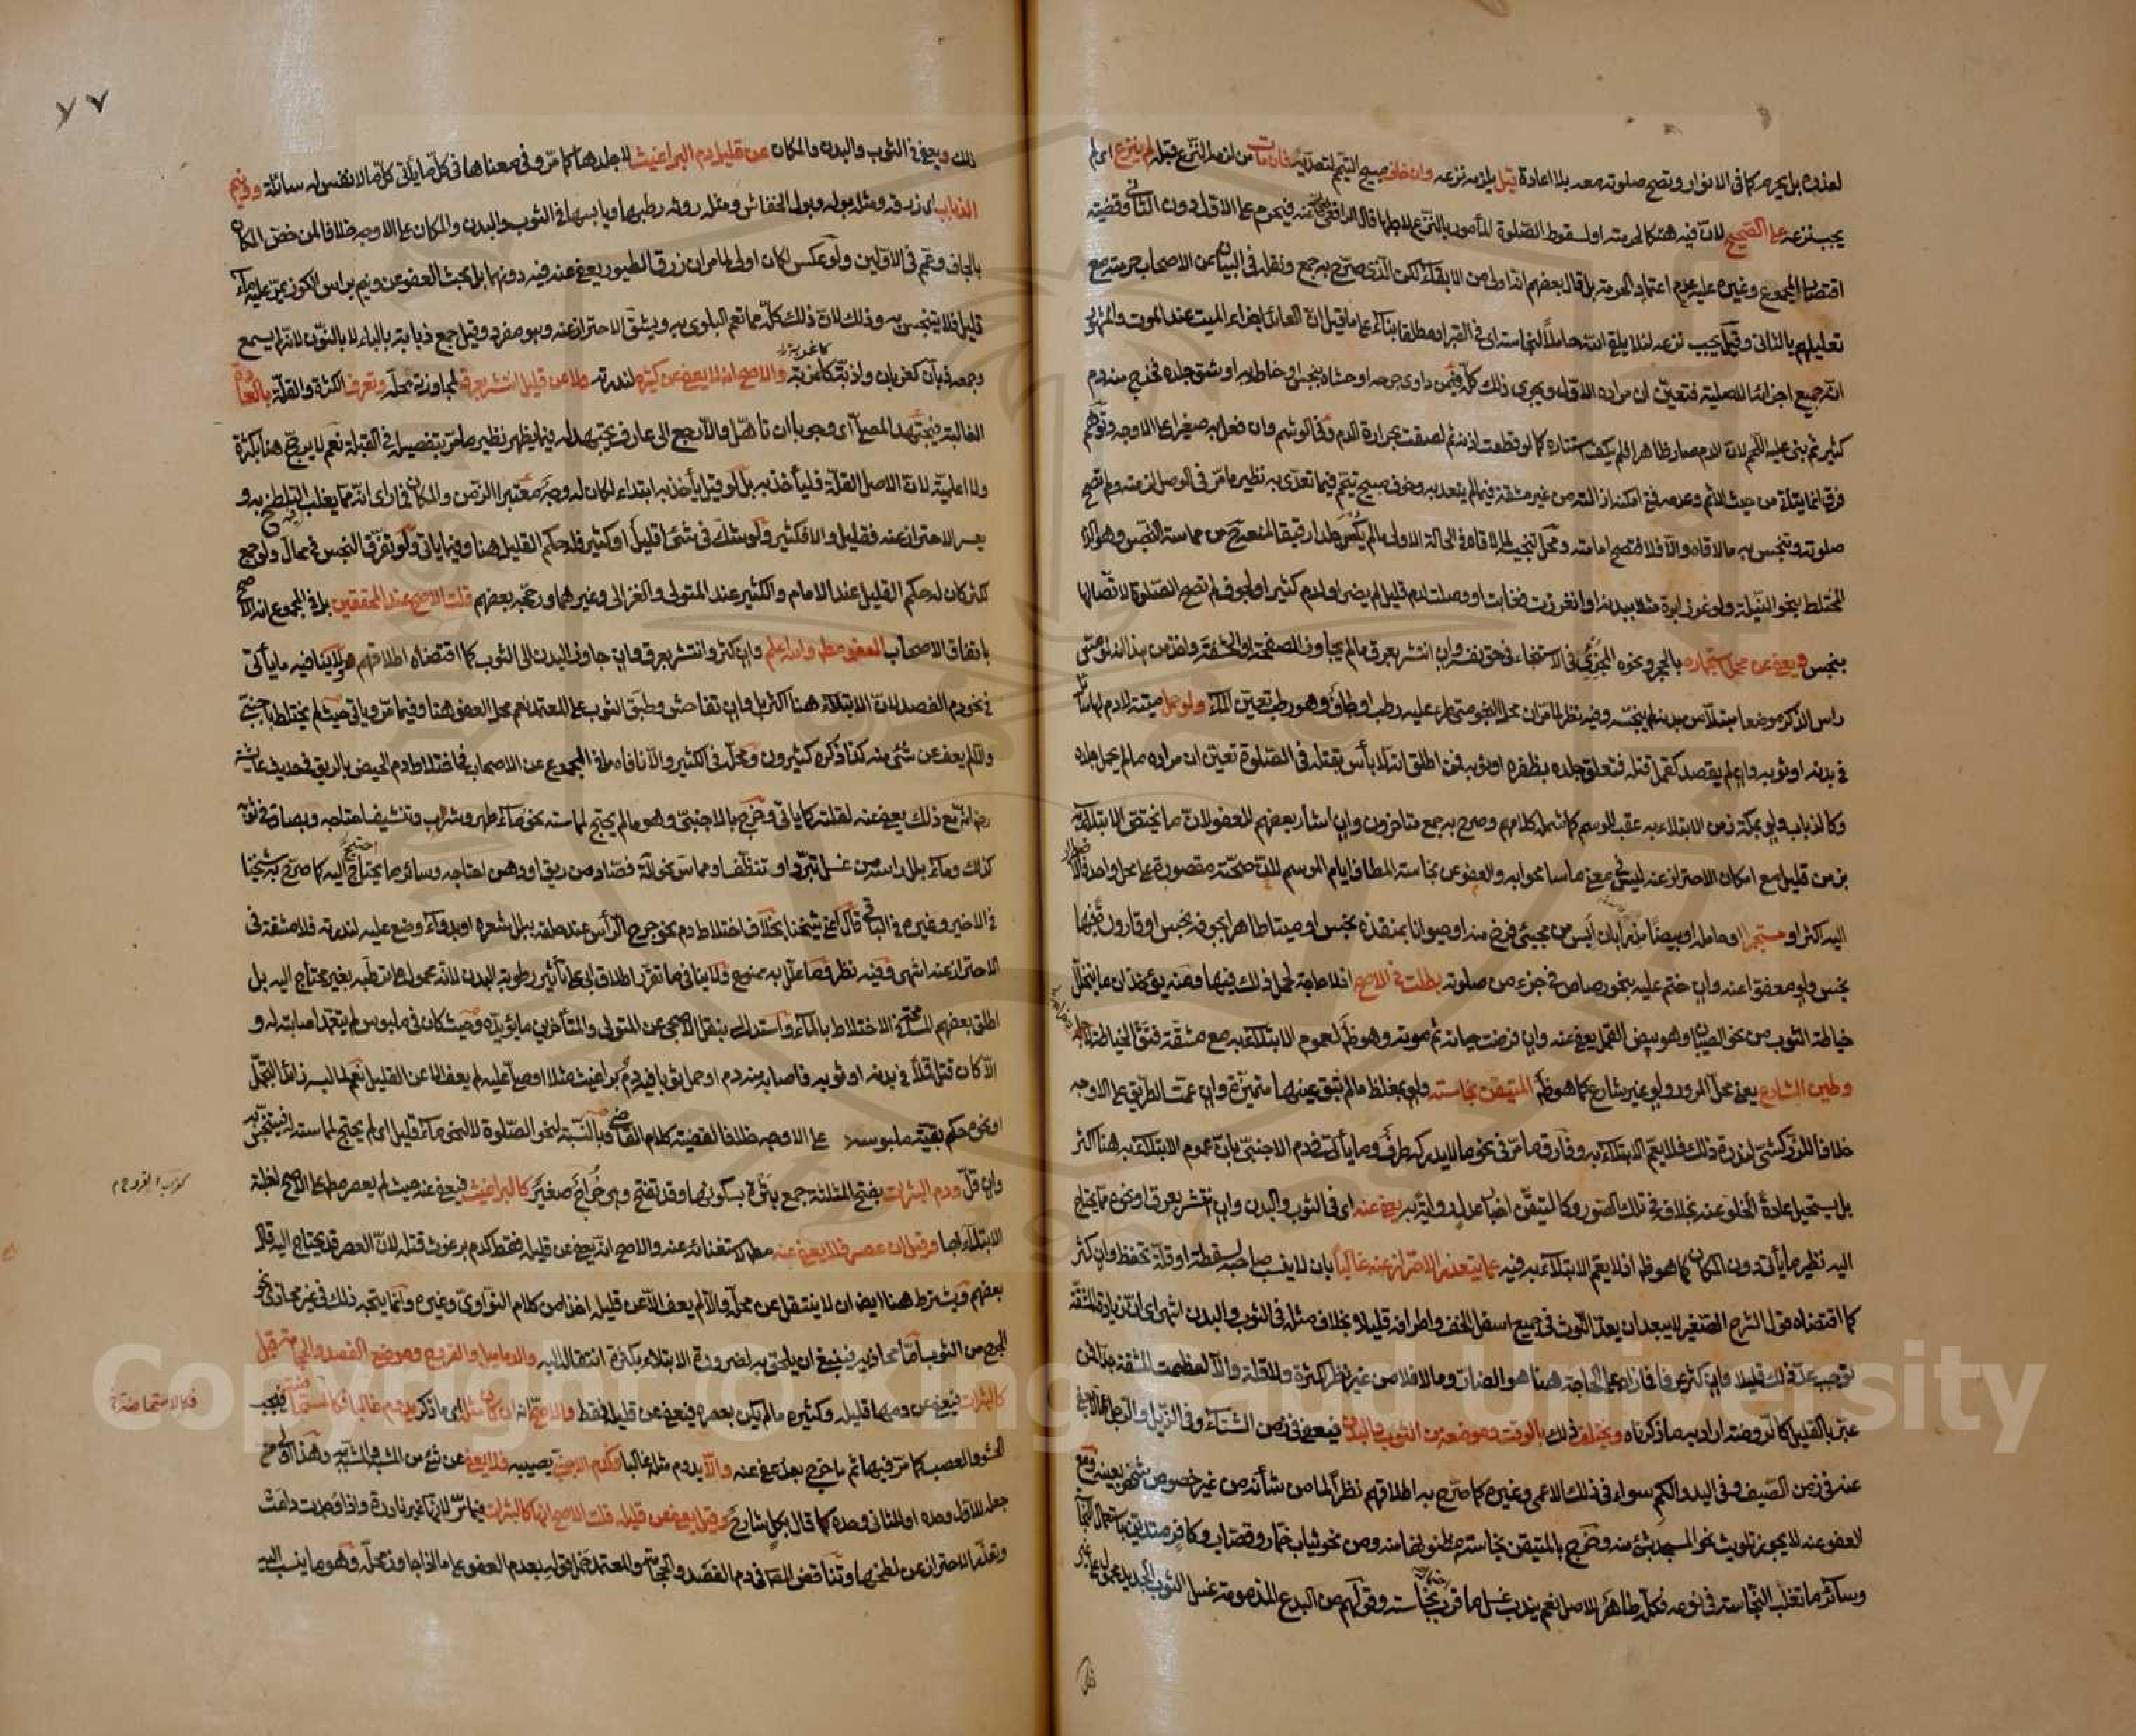 لعذره بل يحرم كما في الانوار وتصح صلوته معه بلا اعادة قيل يلزمه نزعه وان خاف مبيح التيمم لتعديه فان مات من لزمه النزع قبله لم ينزع اى لم
يجب نزعه على الصحيح لان فيه هتكا لحرمته او لسقوط الصلوة المأمور بالنزع لاجلها قال الرافعي فيحرم على الاول دون الثاني وقضية
اقتصار المجموع وغيره عليه عدم اعتماد الحرمة بل قال بعضهم انه اولى من الابقاء لكن الذى صرح به جمع ونقله في البيان عن الاصحاب حرمته مع
تعليلهم بالثاني وقيل يجب نزعه لئلا يلقى الله حاملا لنجاسة اى في القبر او مطلقا بناء على ما قيل ان العائد اجزاء الميت عند الموت والمشهور
انه جميع اجزائه الاصلية فتعين ان مراده الاول ويجرى ذلك كله فيمن داوى جرحه او حشاه بنجس او خاطه به او شق جلده فخرج منه دم
كثير ثم بنى عليه اللحم لان الدم صار ظاهرا فلم يكف استتاره كما لو قطعت اذنه ثم لصقت بحرارة الدم وفي الوشم وان فعل به صغيرا على الاوجه وتوهم
فرق انما يتأتى من حيث الاثم وعدمه فمتى امكنه ازالته من غير مشقة فيما لم يتعد به وخوف مبيح تيمم فيما تعدى به نظير ما مر في الوصل لزمته ولم تصح
صلوته وتنجس به ما لاقاه والا فلا فتصح امامته ومحل تنجيسه لما لاقاه في الحالة الاولى ما لم يكس جلدا رقيقا لمنعه ح من مماسة النجس وهو الدم
المختلط بنحو النيلة ولو غرز ابرة مثلا ببدنه او انغرزت فغابت او وصلت لدم قليل لم يضر او لدم كثير او لجوف لم تصح الصلوة لاتصالها
بنجس ويعفى عن محل استجماره بالحجر ونحوه المجزئ في الاستنجاء في حق نفسه وان انتشر بعرق ما لم يجاوز الصفحة او الحشفة
راس الذكر موضعا مبتلا من بدنه لم ينجسه وفيه نظر لما مر ان محل النجو متى طرء عليه رطب او جاف وهو رطب تعين الماء ولو حمل ميتة لا دم لها سائل
في بدنه او ثوبه وان لم يقصد كقمل قتله فتعلق جلده بظفره او ثوبه فمن اطلق انه لا بأس بقتله في الصلوة تعين ان مراده ما لم يحمل جلده
وكالذباب ولو بمكة زمن الابتلاء به عقب الموسم كما شمله كلامهم وصرح به جمع متاخرون وان اشار بعضهم للعفو لان ما يختص الابتلاء به
بزمن قليل مع امكان الاحتراز عنه ليس في معنى ما سامحوا به والعفو عن نجاسة المطاف ايام الموسم للائمة مقصورة على محل واحد
اليه اكثر او مستجمرا او حامله او بيضا مذرا بان ايس من مجيئ فرخ منه او حيوانا بمنفذه نجس او ميتا طاهرا بجوفه نجس او قارورة فيها
نجس ولو معفوا عنه وان ختم عليه بنحو رصاص في جزء من صلوته بطلت في الاصح اذ لا حاجة لحمل ذلك فيها ومنه يؤخذ ان ما يتخلل
خياطة الثوب من نحو الصئبان وهو بيض القمل يعفى عنه وان فرضت حياته ثم موته وهو ظ لعموم الابتلاء به مع مشقة فتق الخياطة
وطين الشارع يعنى محل المرور ولو غير شارع كما هو ظ المتيقن نجاسته ولو بمغلظ ما لم تبق عينها متميزة وان عمت الطريق على الاوجه
خلافا للزركشي لندرة ذلك فلا يعم الابتلاء به وفارق ما مر في نحو ما لا يدركه طرف وما يأتي في دم الاجنبي بان عموم الابتلاء به هنا اكثر
بل يستحيل عادة الخلو عنه بخلافه في تلك الصور وكالتيقن اخبار عدل رواية به يعفى عنه اى في الثوب والبدن وان انتشر بعرق او نحوه مما يحتاج
اليه نظير ما يأتي دون المكان كما هو ظ اذ لا يعم الابتلاء به فيه عما يتعذر الاحتراز عنه غالبا بان لا ينسب صاحبه لسقطة او قلة تحفظ وان كثر
كما اقتضاه قول الشرح الصغير لا يبعد ان يعد اللوث في جميع اسفل الخف واطرافه قليلا بخلاف مثله في الثوب والبدن انتهى اى ان زيادة المشقة
توجب عد ذلك قليلا وان كثر عرفا فما زاد على الحاجة هنا هو الضار وما لا فلا من غير نظر لكثرة ولا قلة والا لعظمت المشقة جدا فمن
عبر بالقليل كالروضة اراد به ما ذكرناه ويختلف ذلك بالوقت وموضعه من الثوب والبدن فيعفى في زمن الشتاء وفي الذيل والرجل عما لا يعفى
عنه في زمن الصيف وفي اليد والكم سواء في ذلك الاعمى وغيره كما صرح به اطلاقهم نظرا لما من شأنه من غير خصوص شخص بعينه ومع
العفو عنه لا يجوز تلويث نحو المسجد بشئ منه وخرج بالمتيقن نجاسته مظنونها منه ومن نحو ثياب خمار وقصاب وكافر متدين باستعمال النجاسة
وسائر ما تغلب النجاسة في نوعه فكل طاهر للاصل نعم يندب غسل ما قرب نجاسته وقولهم من البدع المذمومة غسل الثوب الجديد محمول على غير
ذلك
٧٧
ذلك ويعفى في الثوب والبدن والمكان عن قليل دم البراغيث لا جلدها كما مر وفي معناها في كل ما يأتي كل ما لا نفس له سائلة وونيم
الذباب اى زرقه ومثله بوله وبول الخفاش ومثله روثه رطبها ويابسها في الثوب والبدن والمكان على الاوجه خلافا لمن خص المكان
بالجاف وعمم في الاولين ولو عكس لكان اولى لما مر ان زرق الطيور يعفى عنه فيه دونهما بل بحث العفو عن ونيم براس الكوز يمر عليه ماء
قليل فلا يتنجس به وذلك لان ذلك كله مما تعم البلوى به ويشق الاحتراز عنه وهو مفرد وقيل جمع ذبابة بالباء لا بالنون لانه لم يسمع
وجمعه ذبان كغربان واذبة كاغربة والاصح انه لا يعفى عن كثيره لندرته ولا عن قليل انتشر بعرق لمجاوزته محله وتعرف الكثرة والقلة بالعادة
الغالبة فيجتهد المصلى اى وجوبا ان تأهل والا رجع الى عارف يجتهد له فيما يظهر نظير ما مر بتفصيله في القبلة نعم لا يرجح هنا بكثرة
ولا اعلمية لان الاصل القلة فليأخذ به بل لو قيل يأخذ به ابتداء لكان له وجه معتبرا الزمن والمكان فما راى انه مما يغلب التلطخ به و
يعسر الاحتراز عنه فقليل والا فكثير ولو شك في شئ اقليل او كثير فله حكم القليل هنا وفيما يأتي ولو تفرق النجس في محال ولو جمع
كثر كان له حكم القليل عند الامام والكثير عند المتولى والغزالى وغيرهما ورجحه بعضهم قلت الاصح عند المحققين بل في المجموع انه الاصح
باتفاق الاصحاب العفو مطلقا والله اعلم وان كثر وانتشر بعرق وان جاوز البدن الى الثوب كما اقتضاه اطلاقهم ولا ينافيه ما يأتي
في نحو دم الفصد لان الابتلاء هنا اكثر بل وان تفاحش وطبق الثوب على المعتمد نعم محل العفو هنا وفيما مر ويأتي حيث لم يختلط باجنبي
والا لم يعف عن شئ منه كذا ذكره كثيرون ومحله في الكثير والا نافاه ما في المجموع عن الاصحاب في اختلاط دم الحيض بالريق في حديث عائشة
مع ذلك يعفى عنه لقلته كما يأتي وخرج بالاجنبي وهو ما لم يحتج لمماسته نحو ماء طهر وشراب وتنشيف احتاجه وبصاق في ثوبه
كذلك وماء بلل راسه من غسل تبرد او تنظف ومماس نحو آلة فصاد من ريق او دهن احتاجه وسائر ما يحتاج اليه كما صرح به شيخنا
في الاخير وغيره في الباقي قال شيخنا بخلاف اختلاط دم نحو جرح الرأس عند حلقه ببلل شعره او بدواء وضع عليه لندرته فلا مشقة في
الاحتراز عنه انتهى وفيه نظر فما علل به ممنوع ولا ينافى ما تقرر اطلاق ابى على تأثير رطوبة البدن لانه محمول على ترطبه بغير محتاج اليه بل
اطلق بعضهم المسامحة في الاختلاط بالماء واستدل له بنقل الاصبحي عن المتولى والمتأخرين ما يؤيده وحيث كان في ملبوس لم يتعمد اصابته له و
الا كان قتل قملا في بدنه او ثوبه فاصابه منه دم او حمل ثوبا فيه دم براغيث مثلا او صلى عليه لم يعف الا عن القليل نعم لما لبسه زائدا لتجمل
او نحوه حكم بقية ملبوسه على الاوجه خلافا لقضية كلام القاضى وبالنسبة لنحو الصلوة لا لنحو ماء قليل اى لم يحتج لمماسته له فينجس به
وان قل ودم البثرات بفتح المثلثة جمع بثرة بسكونها وقد تفتح وهى خراج صغير كالبراغيث فيعفى عنه حيث لم يعصر مطلقا على الاصح لغلبة
الابتلاء بها وقيل ان عصره فلا يعفى عنه مطلقا لاستغنائه عنه والاصح انه يعفى عن قليله فقط كدم برغوث قتله لان العصر قد يحتاج اليه قال
بعضهم ويشترط هنا ايضا ان لا ينتقل عن محله والا لم يعف الا عن قليله اخذا من كلام النواوى وغيره وانما يتجه ذلك في غير محاذى نحو
الجرح من الثوب اما محاذيه فينبغي ان يلحق به لضرورة الابتلاء بكثرة انتقاله اليه والدماميل والقروح وموضع الفصد والحجامة قيل
كالبثرات فيعفى عن دمها قليله وكثيره ما لم يكن بعصره فيعفى عن قليله فقط والاصح انه ان كان مثله اى ما ذكر يدوم غالبا فكالاستحاضة فيجب
الحشو والعصب كما مر فيها ثم ما خرج بعد عفى عنه والا يدوم مثله غالبا فكدم الاجنبي يصيبه فلا يعفى عن شئ من المشبه والمشبه به وهذا اولى من
جعله للاول وحده او للثاني وحده كما قال بكل شارح وقيل يعفى عن قليله قلت الاصح انها كالبثرات فيما مر لانها غير نادرة واذا وجدت دامت
وتعذر الاحتراز عن لطخها وتناقض المص في دم الفصد والحجامة والمعتمد حمل قوله بعدم العفو على ما اذا جاوز محله وهو ما ينسب اليه
فكالاستحاضة